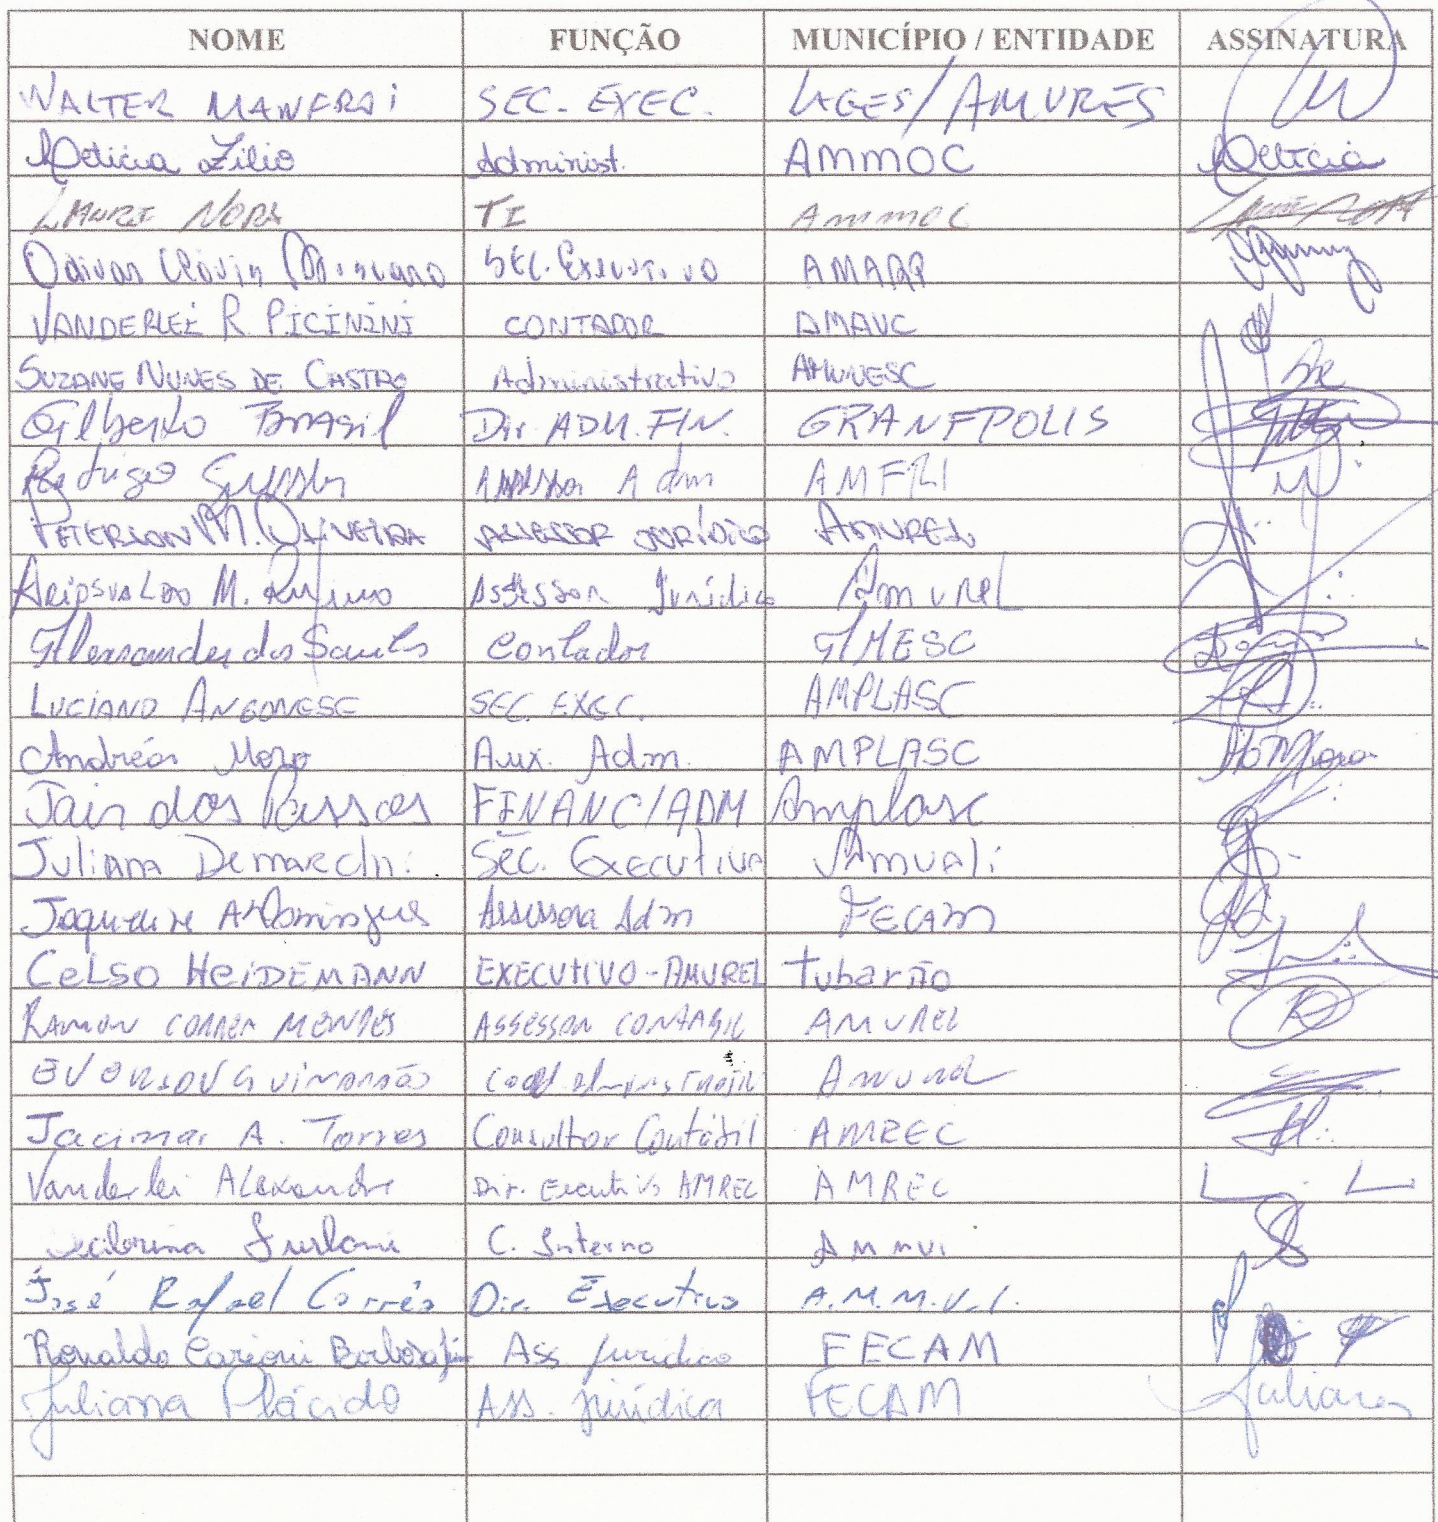 NOME FUNÇÃO MUNICÍPIO / ENTIDADE ASSINATURA
WALTER MANFROI SEC. EXEC. LAGES/AMURES
Leticia Zilio Administ. AMMOC Leticia
LAURI NORA TI AMMOC
SEC. Executivo AMARP
VANDERLEI R PICININI CONTADOR AMAUC
SUZANE NUNES DE CASTRO Administrativo AMUNESC
Gilberto Brasil Dir. ADM. FIN. GRANFPOLIS
Rodrigo Assessor Adm AMFRI
PETERSON M. OLIVEIRA ASSESSOR JURÍDICO AMUREL
Aripsvaldo M. Rufino Assessor Jurídico Amurel
Alessandes dos Santos Contador AMESC
LUCIANO ANGONESE SEC. EXEC. AMPLASC
Andréia Moro Aux. Adm. AMPLASC
Jair dos Passos FINANC/ADM Amplasc
Juliana Demarchi. Sec. Executiva Amvali
Domingues Assessora Adm FECAM
CELSO HEIDEMANN EXECUTIVO-AMUREL Tubarão
RAMON CORREA MENDES ASSESSOR CONTABIL AMUREL
Guimarães Amurel
Jacimar A. Torres Consultor Contábil AMREC
Vanderlei Alexandre Dir. Executivo AMREC AMREC
Furlani C. Interno Ammvi
José Rafael Corrêa Dir. Executivo A.M.M.V.I.
Ronaldo Carioni Barbosa Ass jurídico FECAM
Juliana Plácido Ass. jurídica FECAM Juliana